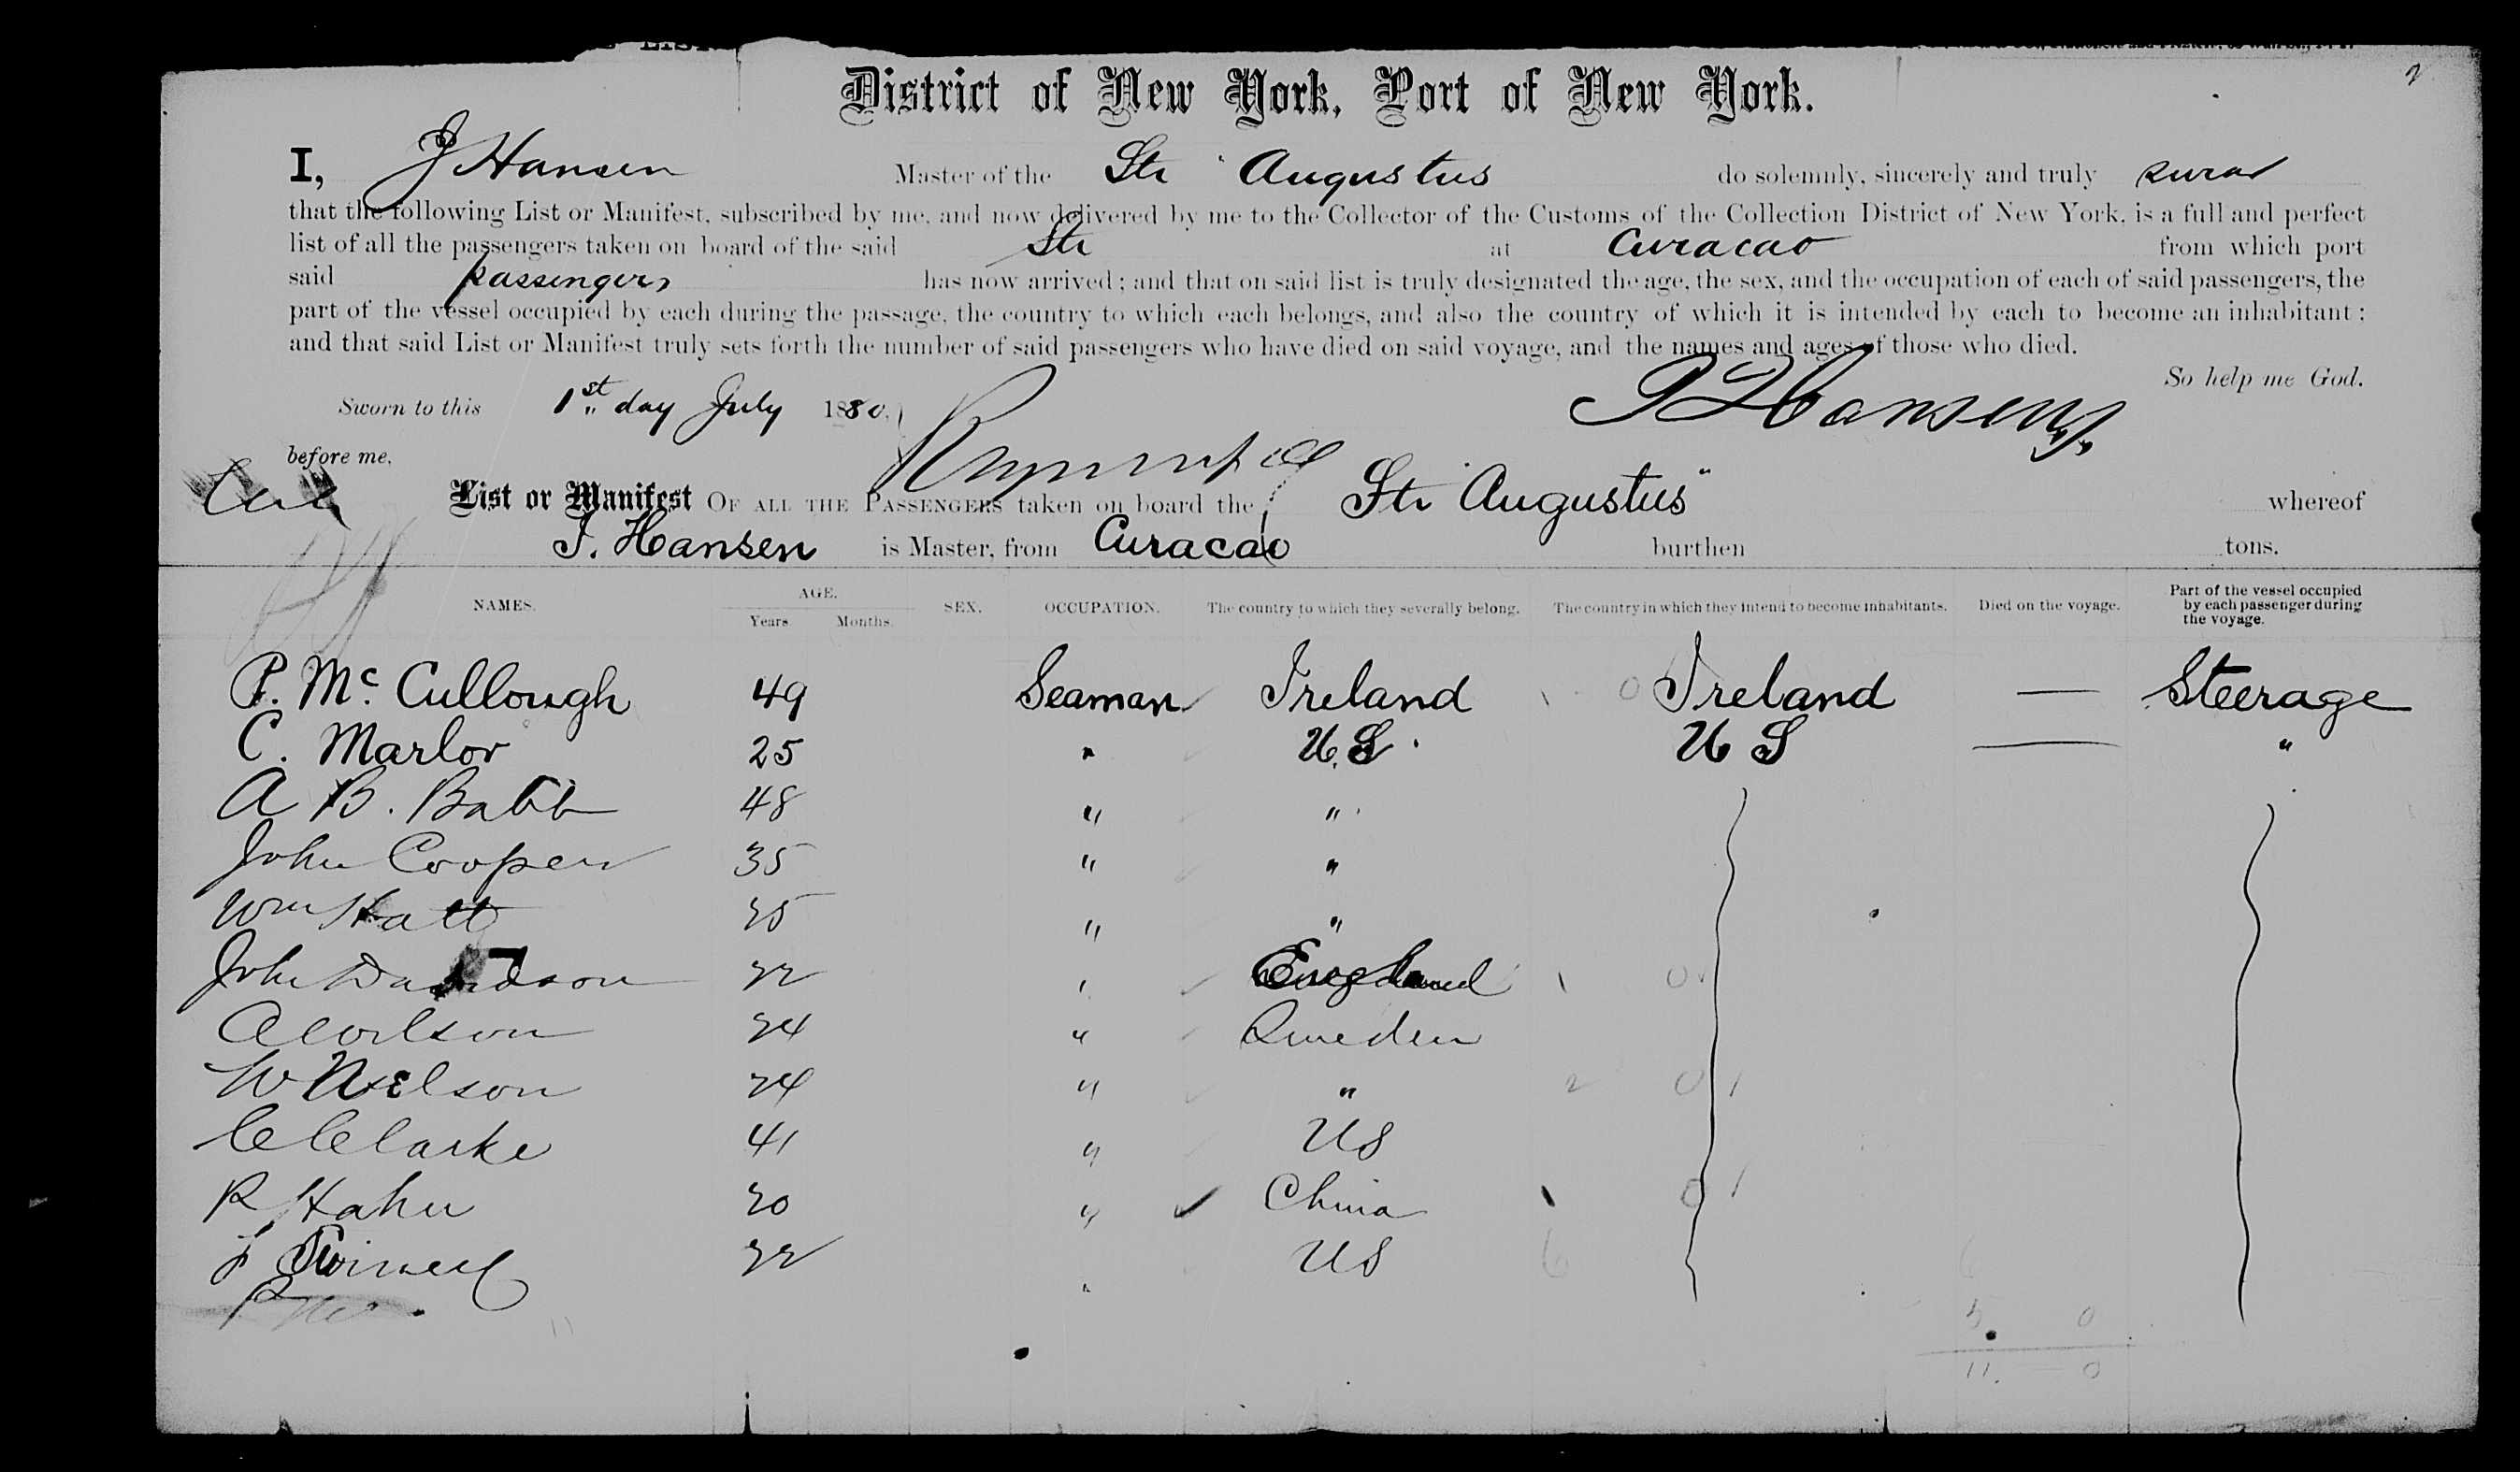 District of New York, Port of New York.
I, J Hansen Master of the Str "Augustus do solemnly, sincerely and truly swear
that the following List or Manifest, subscribed by me, and now delivered by me to the Collector of the Customs of the Collection District of New York, is a full and perfect
list of all the passengers taken on board of the said Str at Curacao from which port
said passengers has now arrived; and that on said list is truly designated the age, the sex, and the occupation of each of said passengers, the
part of the vessel occupied by each during the passage, the country to which each belongs, and also the country of which it is intended by each to become an inhabitant;
and that said List or Manifest truly sets forth the number of said passengers who have died on said voyage, and the names and ages of those who died.
So help me God.
Sworn to this 1st day July 1880. Hansen
before me.
List or Manifest OF ALL THE PASSENGERS taken on board the Str Augustus" whereof
J. Hansen is Master, from Curacao burthen tons.
NAMES. AGE. Years Months. SEX. OCCUPATION. The country to which they severally belong. The country in which they intend to become inhabitants. Died on the voyage. Part of the vessel occupied by each passenger during the voyage.
P. Mc Cullough 49 Seaman Ireland 0 Ireland — Steerage
C. Marlor 25 " U.S. U S — "
A B. Babb 48 " "
John Cooper 35 " "
Wm Hatt 25 " "
John Davidson 22 " England 0
A Carlson 24 " Sweden
W Nelson 24 " " 2 0 1
C Clarke 41 " US
R Hahn 20 " China 0 1
22 " US 6
5 0
11. 0